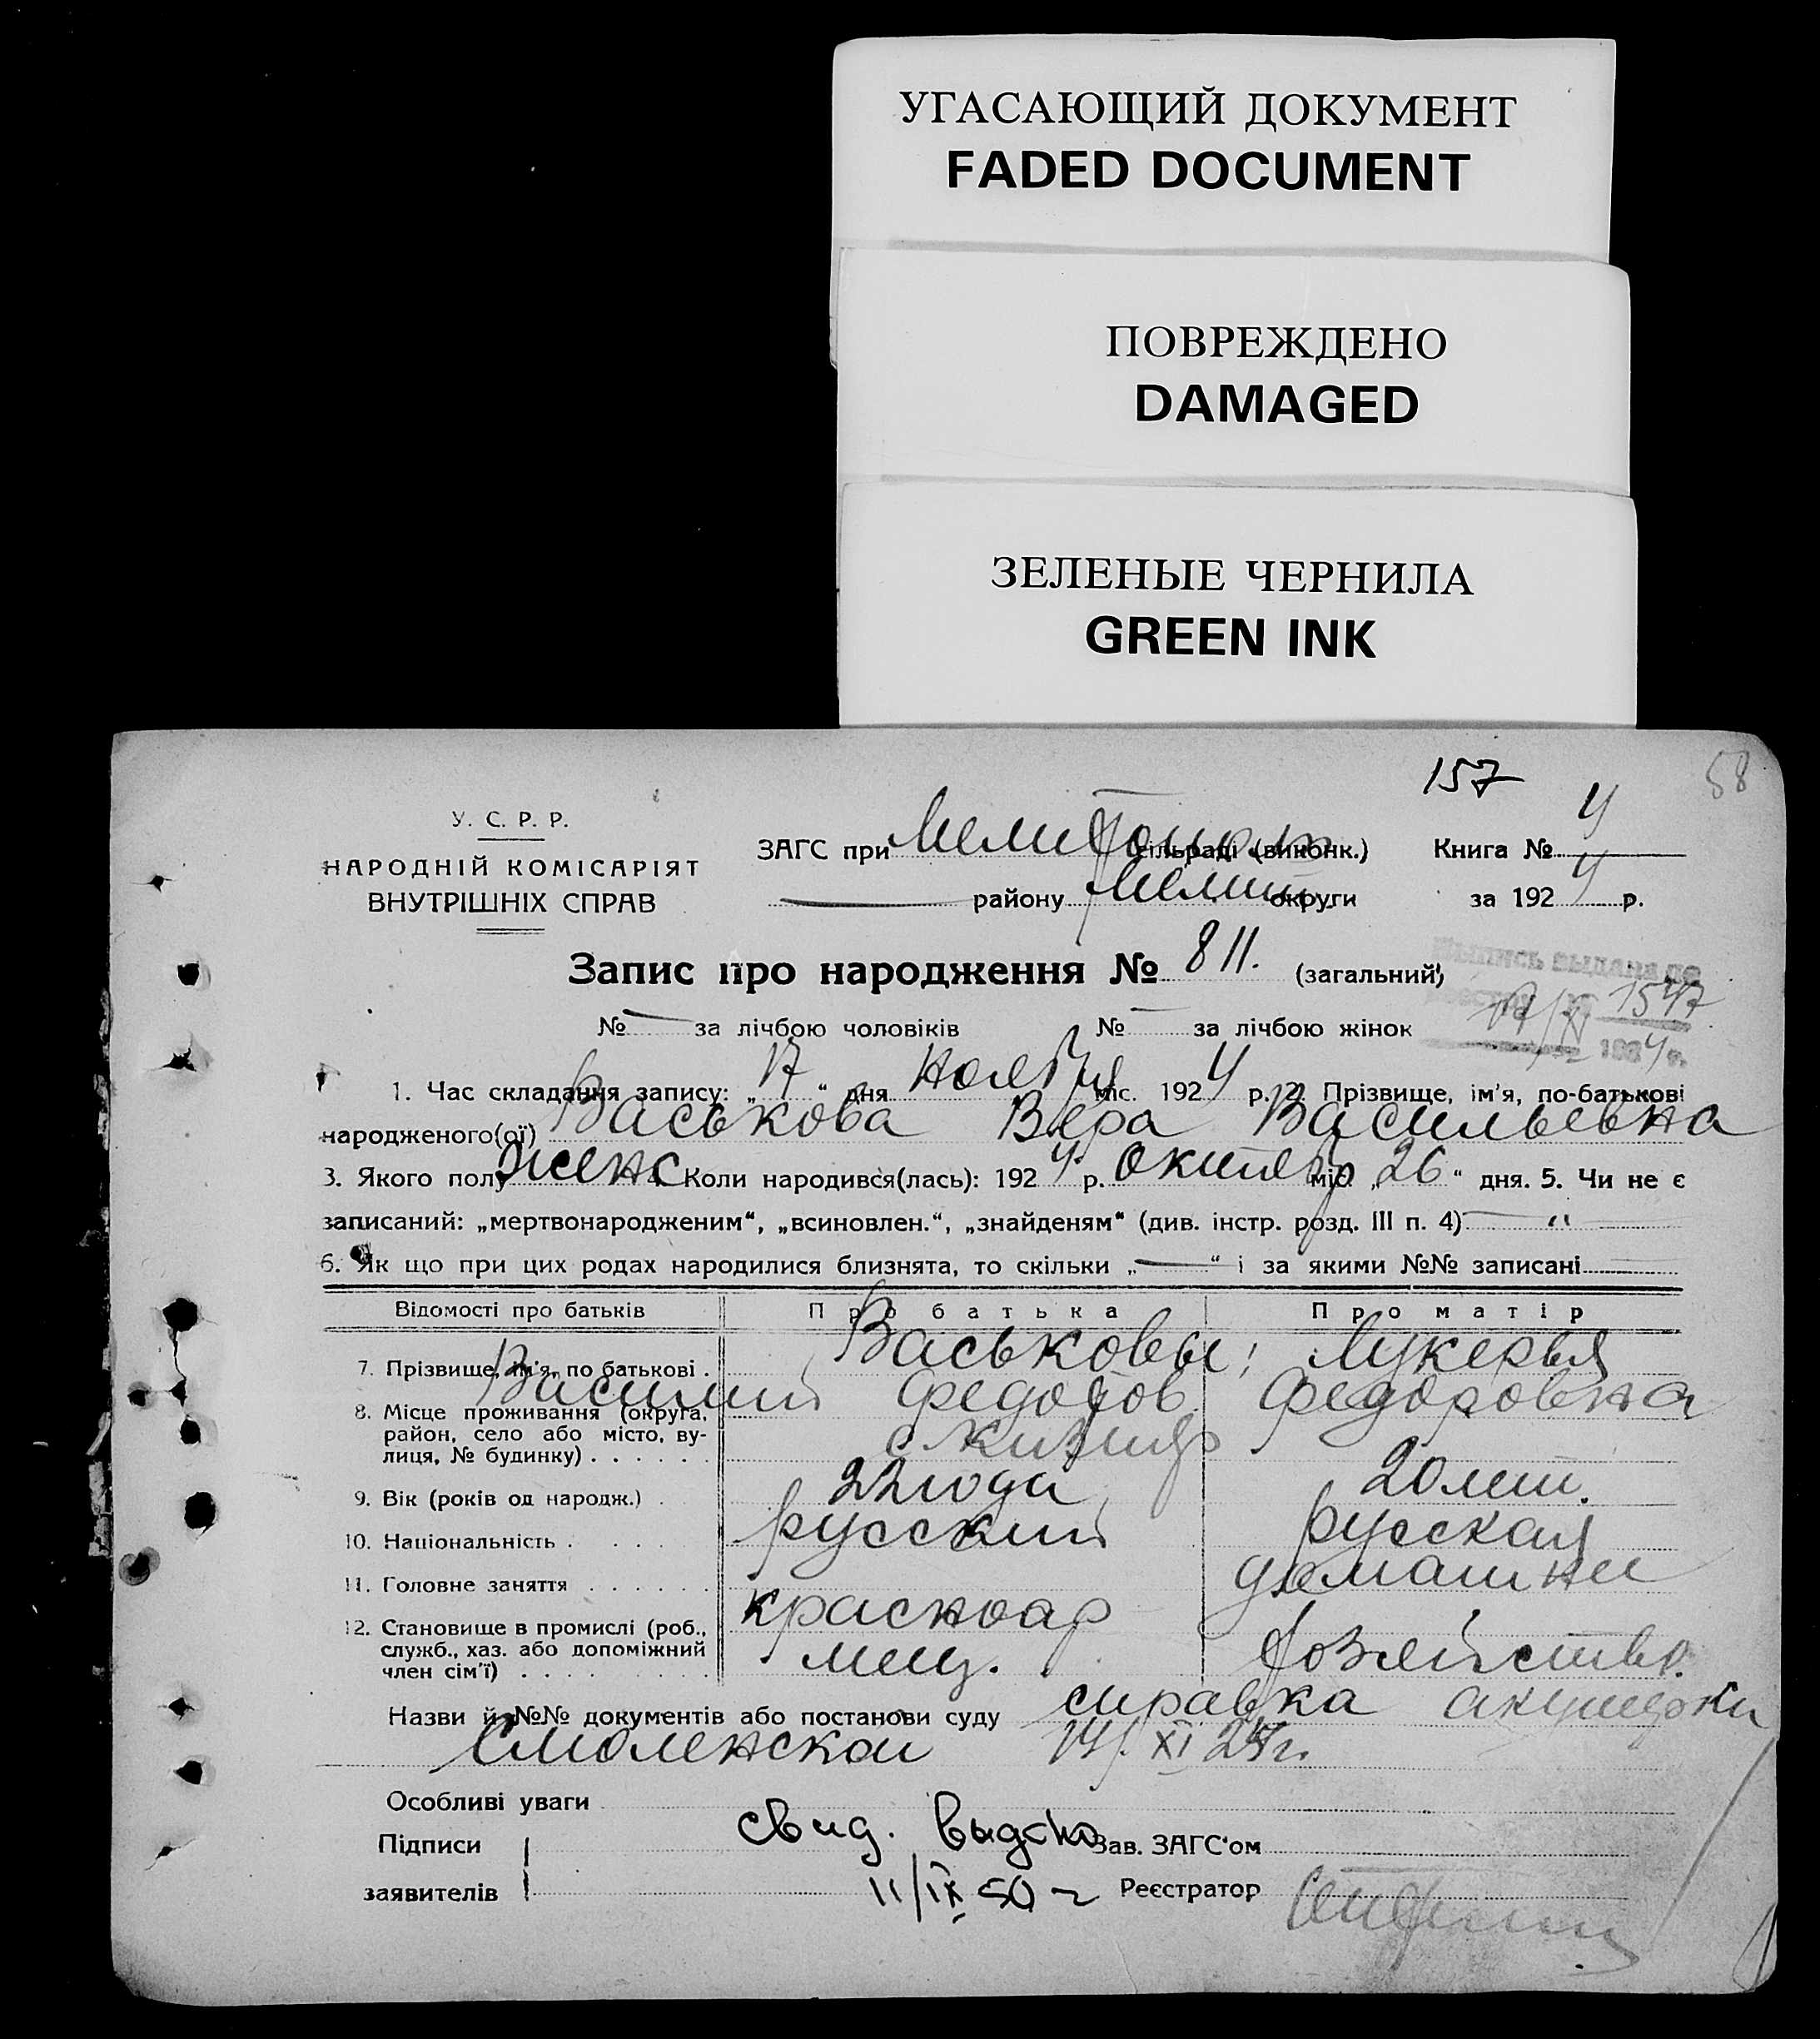 УГАСАЮЩИЙ ДОКУМЕНТ
FADED DOCUMENT
ПОВРЕЖДЕНО
DAMAGED
ЗЕЛЕНЫЕ ЧЕРНИЛА
GREEN INK
157
58
У. С. Р. Р.
НАРОДНІЙ КОМІСАРІЯТ
ВНУТРІШНІХ СПРАВ
ЗАГС при сільраді (виконк.) Книга № 4
району Мелит. округи за 1924 р.
Запис про народження № 811. (загальний)
Выпись выдана по
1547
№ за лічбою чоловіків № за лічбою жінок
1. Час складання запису: „17“ дня ноября міс. 1924 р. 2. Прізвище, ім'я, по-батькові
народженого(ої) Васькова Вера Васильевна
3. Якого полу женс Коли народився(лась): 1924 р. октябр міс. „26“ дня. 5. Чи не є
записаний: „мертвонародженим“, „всиновлен.“, „знайденям“ (див. інстр. розд. III п. 4) — „ —
6. Як що при цих родах народилися близнята, то скільки „—“ і за якими №№ записані
Відомості про батьків Про батька Про матір
7. Прізвище, ім'я, по батькові . Васьковы; Лукерья
Василий Федотов Федоровна
8. Місце проживання (округа,
район, село або місто, ву-
лиця, № будинку) . . . . . .
9. Вік (років од народж.) . 22 года 20 лет.
10. Національність . . . . русский русская
11. Головне заняття . . . . . . домашнее
12. Становище в промислі (роб.,
служб., хаз. або допоміжний
член сім'ї) . . . . . . . . . .
красноар
меец. хозяйство.
Назви й №№ документів або постанови суду справка акушерки
Смоленской 14/XI 24 г.
Особливі уваги
Підписи свид. выдано Зав. ЗАГС'ом
заявителів 11/IX 50 г Реєстратор